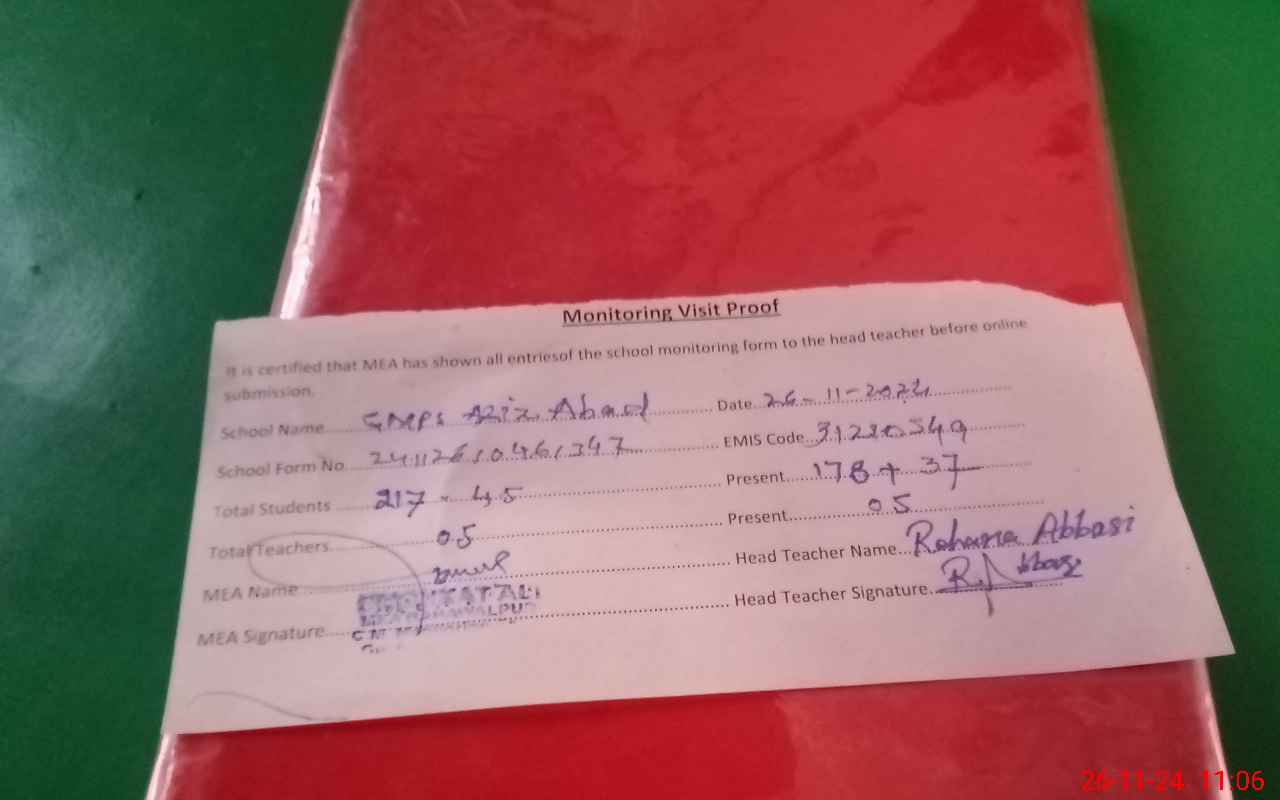 Monitoring Visit Proof
It is certified that MEA has shown all entriesof the school monitoring form to the head teacher before online
submission.
School Name GMPS Aziz Abad Date 26-11-2024
School Form No 241126/046/347 EMIS Code 31220549
Total Students 217 - 45 Present 178 + 37
Total Teachers 05 Present 05
MEA Name Head Teacher Name Rehana Abbasi
MEA Signature Head Teacher Signature R. Abbasi
26-11-24 11:06